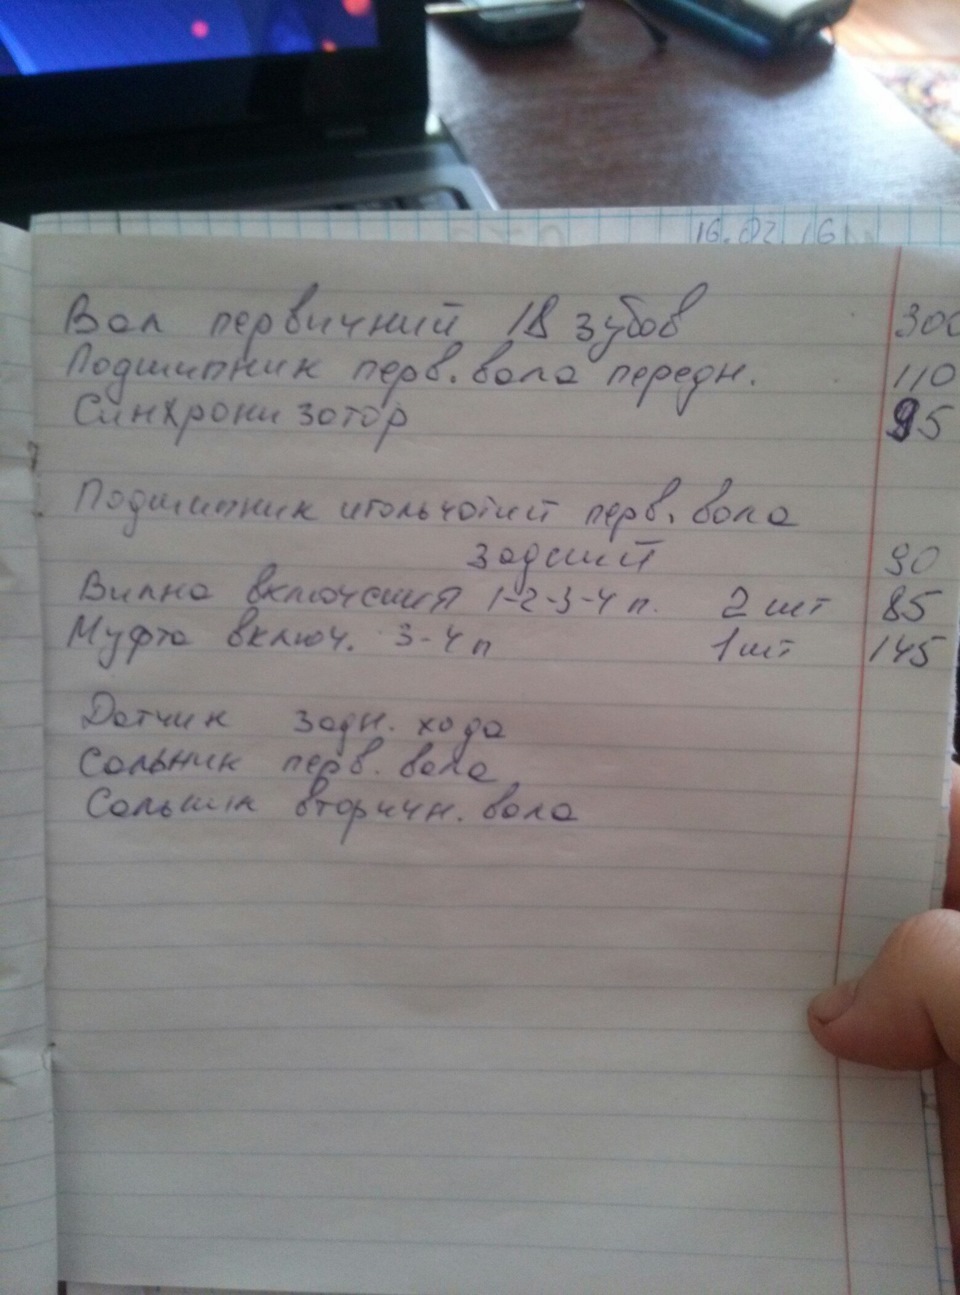 16.02.16
Вал первичний 18 зубов 300
Подшипник перв. вала передн. 110
Синхронизатор 95
Подшипник игольчатий перв. вала
задний 90
Вилка включения 1-2-3-4 п. 2 шт 85
Муфта включ. 3-4 п 1 шт 145
Датчик задн. хода
Сальник перв. вала
Сальник вторичн. вала